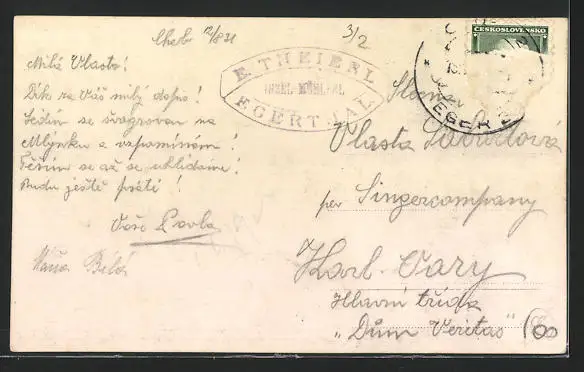 Cheb 12/8 31
3/2
Milá Vlasto!
Dík za Váš milý dopis!
Sedím se švagrovou na
Mlýnku a vzpomínám!
Těším se až se uhlídáme!
Budu ještě psáti!
Vaše Pavla
Bílá
E. THEIERL
INSEL-MÜHL
EGERTHAL
ČESKOSLOVENSKO
EGER 2
Slečna
Vlasta
per Singercompany
Karl. Vary
Hlavní třída
„Dům Veritas"